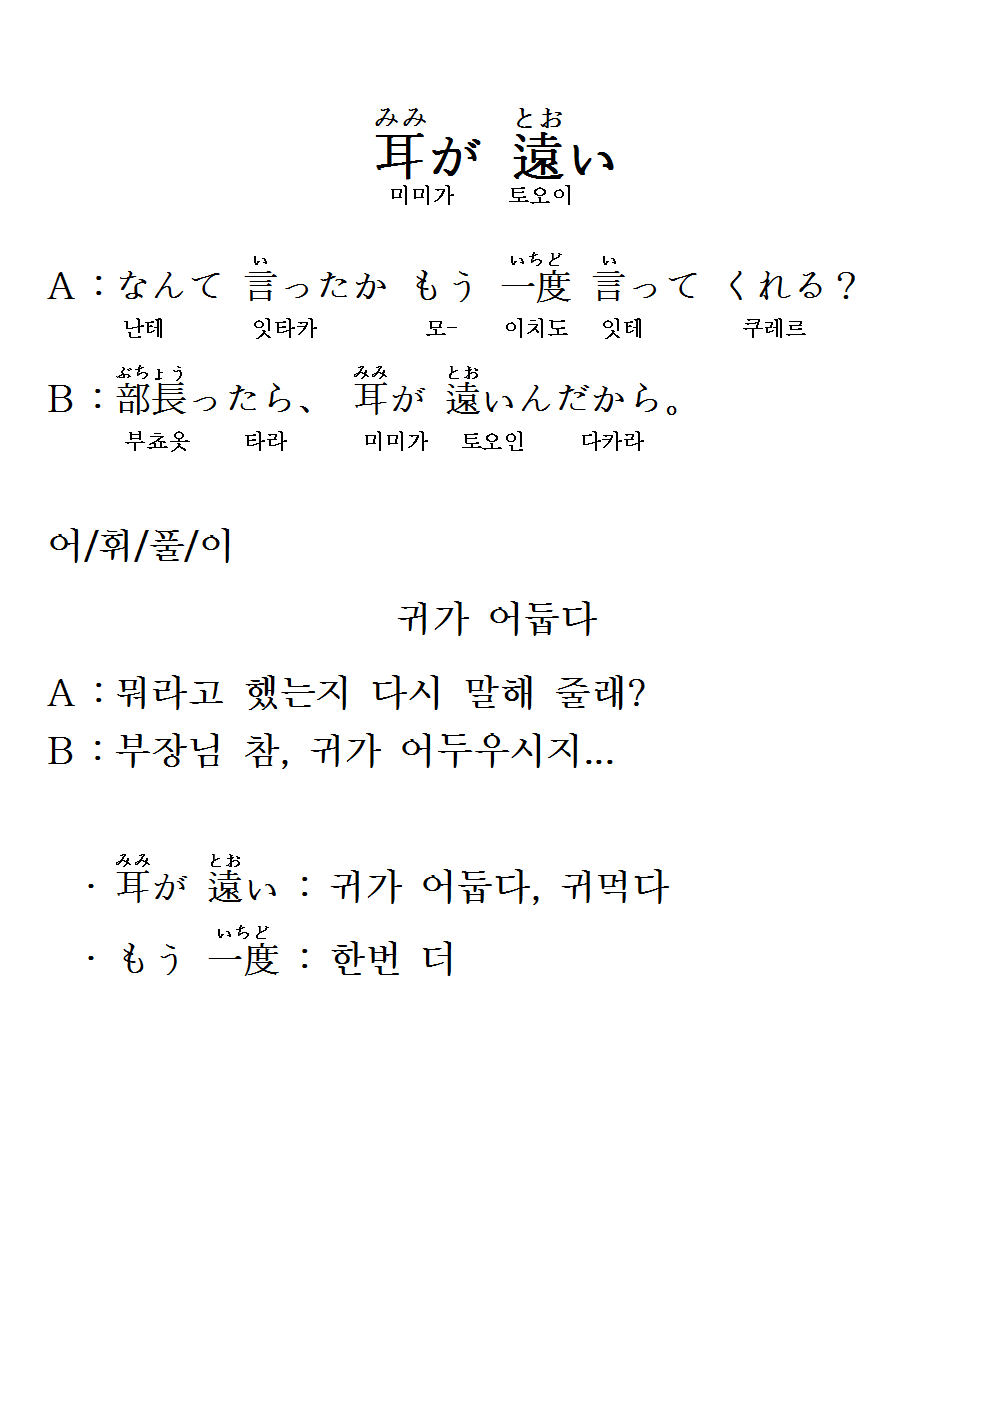 みみ とお
耳が 遠い
미미가 토오이
い いちど い
A : なんて 言ったか もう 一度 言って くれる？
난테 잇타카 모- 이치도 잇테 쿠레르
ぶちょう みみ とお
B : 部長ったら、 耳が 遠いんだから。
부쵸옷 타라 미미가 토오인 다카라
어/휘/풀/이
귀가 어둡다
A : 뭐라고 했는지 다시 말해 줄래?
B : 부장님 참, 귀가 어두우시지...
みみ とお
· 耳が 遠い : 귀가 어둡다, 귀먹다
いちど
· もう 一度 : 한번 더